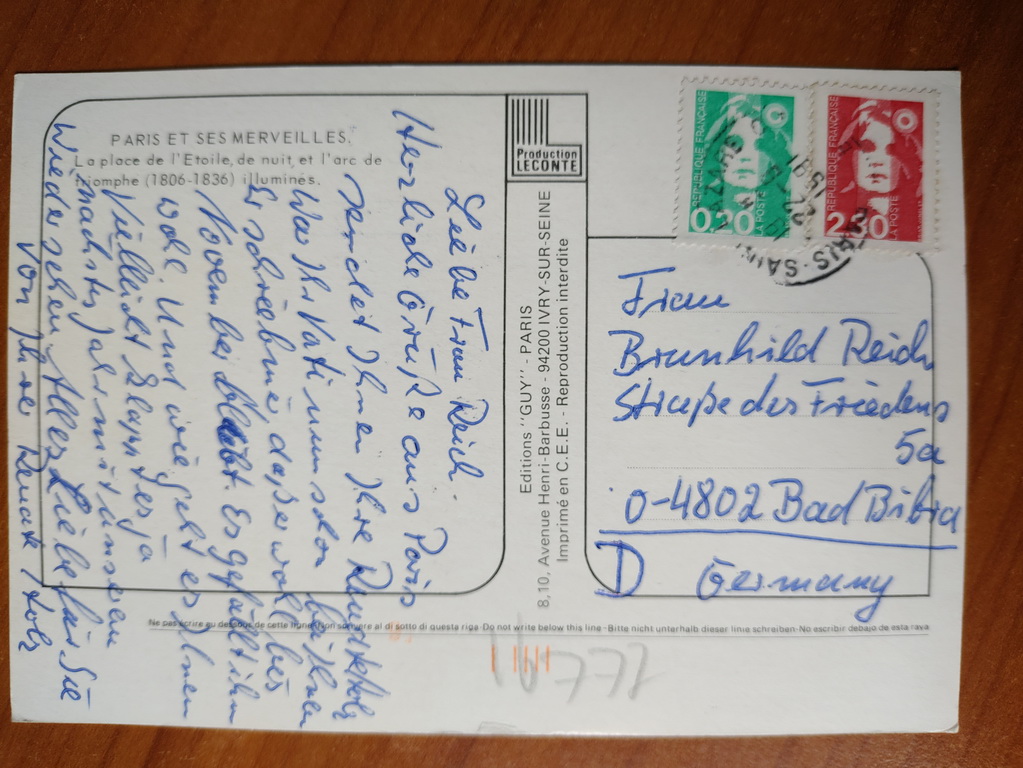 PARIS ET SES MERVEILLES.
La place de l'Etoile, de nuit, et l'arc de
triomphe (1806-1836) illuminés.
Production
LECONTE
Editions "GUY" - PARIS
8,10, Avenue Henri-Barbusse - 94200 IVRY-SUR-SEINE
Imprimé en C.E.E. - Reproduction interdite
REPUBLIQUE FRANÇAISE
0,20
LA POSTE
REPUBLIQUE FRANÇAISE
2,30
LA POSTE
PARIS
Liebe Frau Reich.
Herzliche Grüße aus Paris
sendet Ihnen Ihre Renate Holz
War Ihr Vati nun schon bei Ihnen
Er schrieb mir, daß er wohl bis
November bleibt. Es gefällt ihm
wohl. Und wie geht es Ihnen
Vielleicht klappt es ja
nächstes Jahr mit unserem
Wiedersehen. Alles Liebe für Sie
von Ihre Renate Holz
Frau
Brunhild Reich
Straße des Friedens
5a
O-4802 Bad Bibra
D Germany
Ne pas écrire au dessous de cette ligne-Non scrivere al di sotto di questa riga-Do not write below this line-Bitte nicht unterhalb dieser linie schreiben-No escribir debajo de esta raya